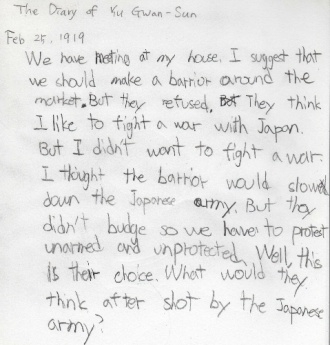 The Diary of Yu Gwan-Sun
Feb 25, 1919
We have meeting at my house. I suggest that
we should make a barrior around the
market. But they refused. They think
I like to fight a war with Japan.
But I didn't want to fight a war.
I thought the barrior would slowed
down the Japanese army. But they
didn't budge so we have to protest
unarmed and unprotected. Well, this
is their choice. What would they
think after shot by the Japanese
army?